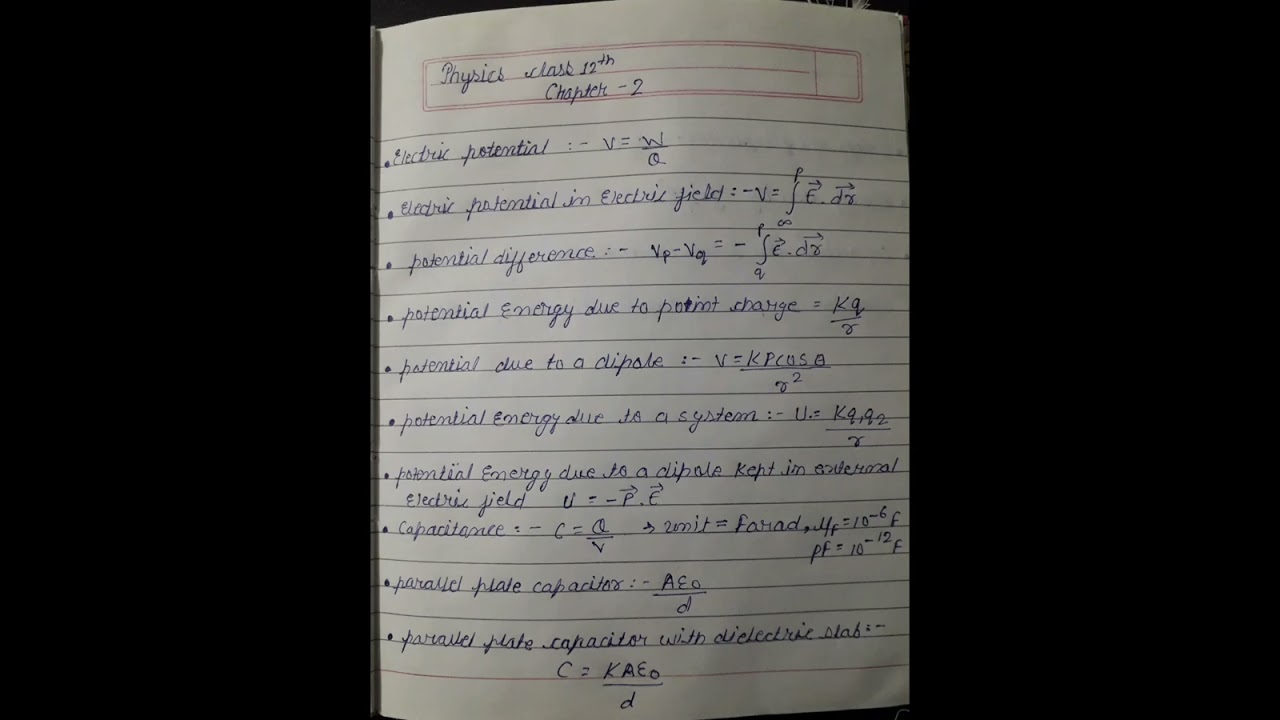 Physics class 12th
Chapter - 2
• Electric potential :- V = W/Q
• Electric potential in Electric field :- V = ∫_∞^P E⃗. dr⃗
• potential difference :- Vp - Vq = - ∫_q^P E⃗. dr⃗
• potential Energy due to point charge = Kq/r
• potential due to a dipole :- V = KPcosθ/r²
• potential Energy due to a system :- U = Kq₁q₂/r
• potential Energy due to a dipole kept in external
Electric field U = -P⃗.E⃗
• Capacitance :- C = Q/V → unit = Farad, μF = 10⁻⁶F
pF = 10⁻¹²F
• parallel plate capacitor :- Aε₀/d
• parallel plate capacitor with dielectric slab :-
C = KAε₀/d